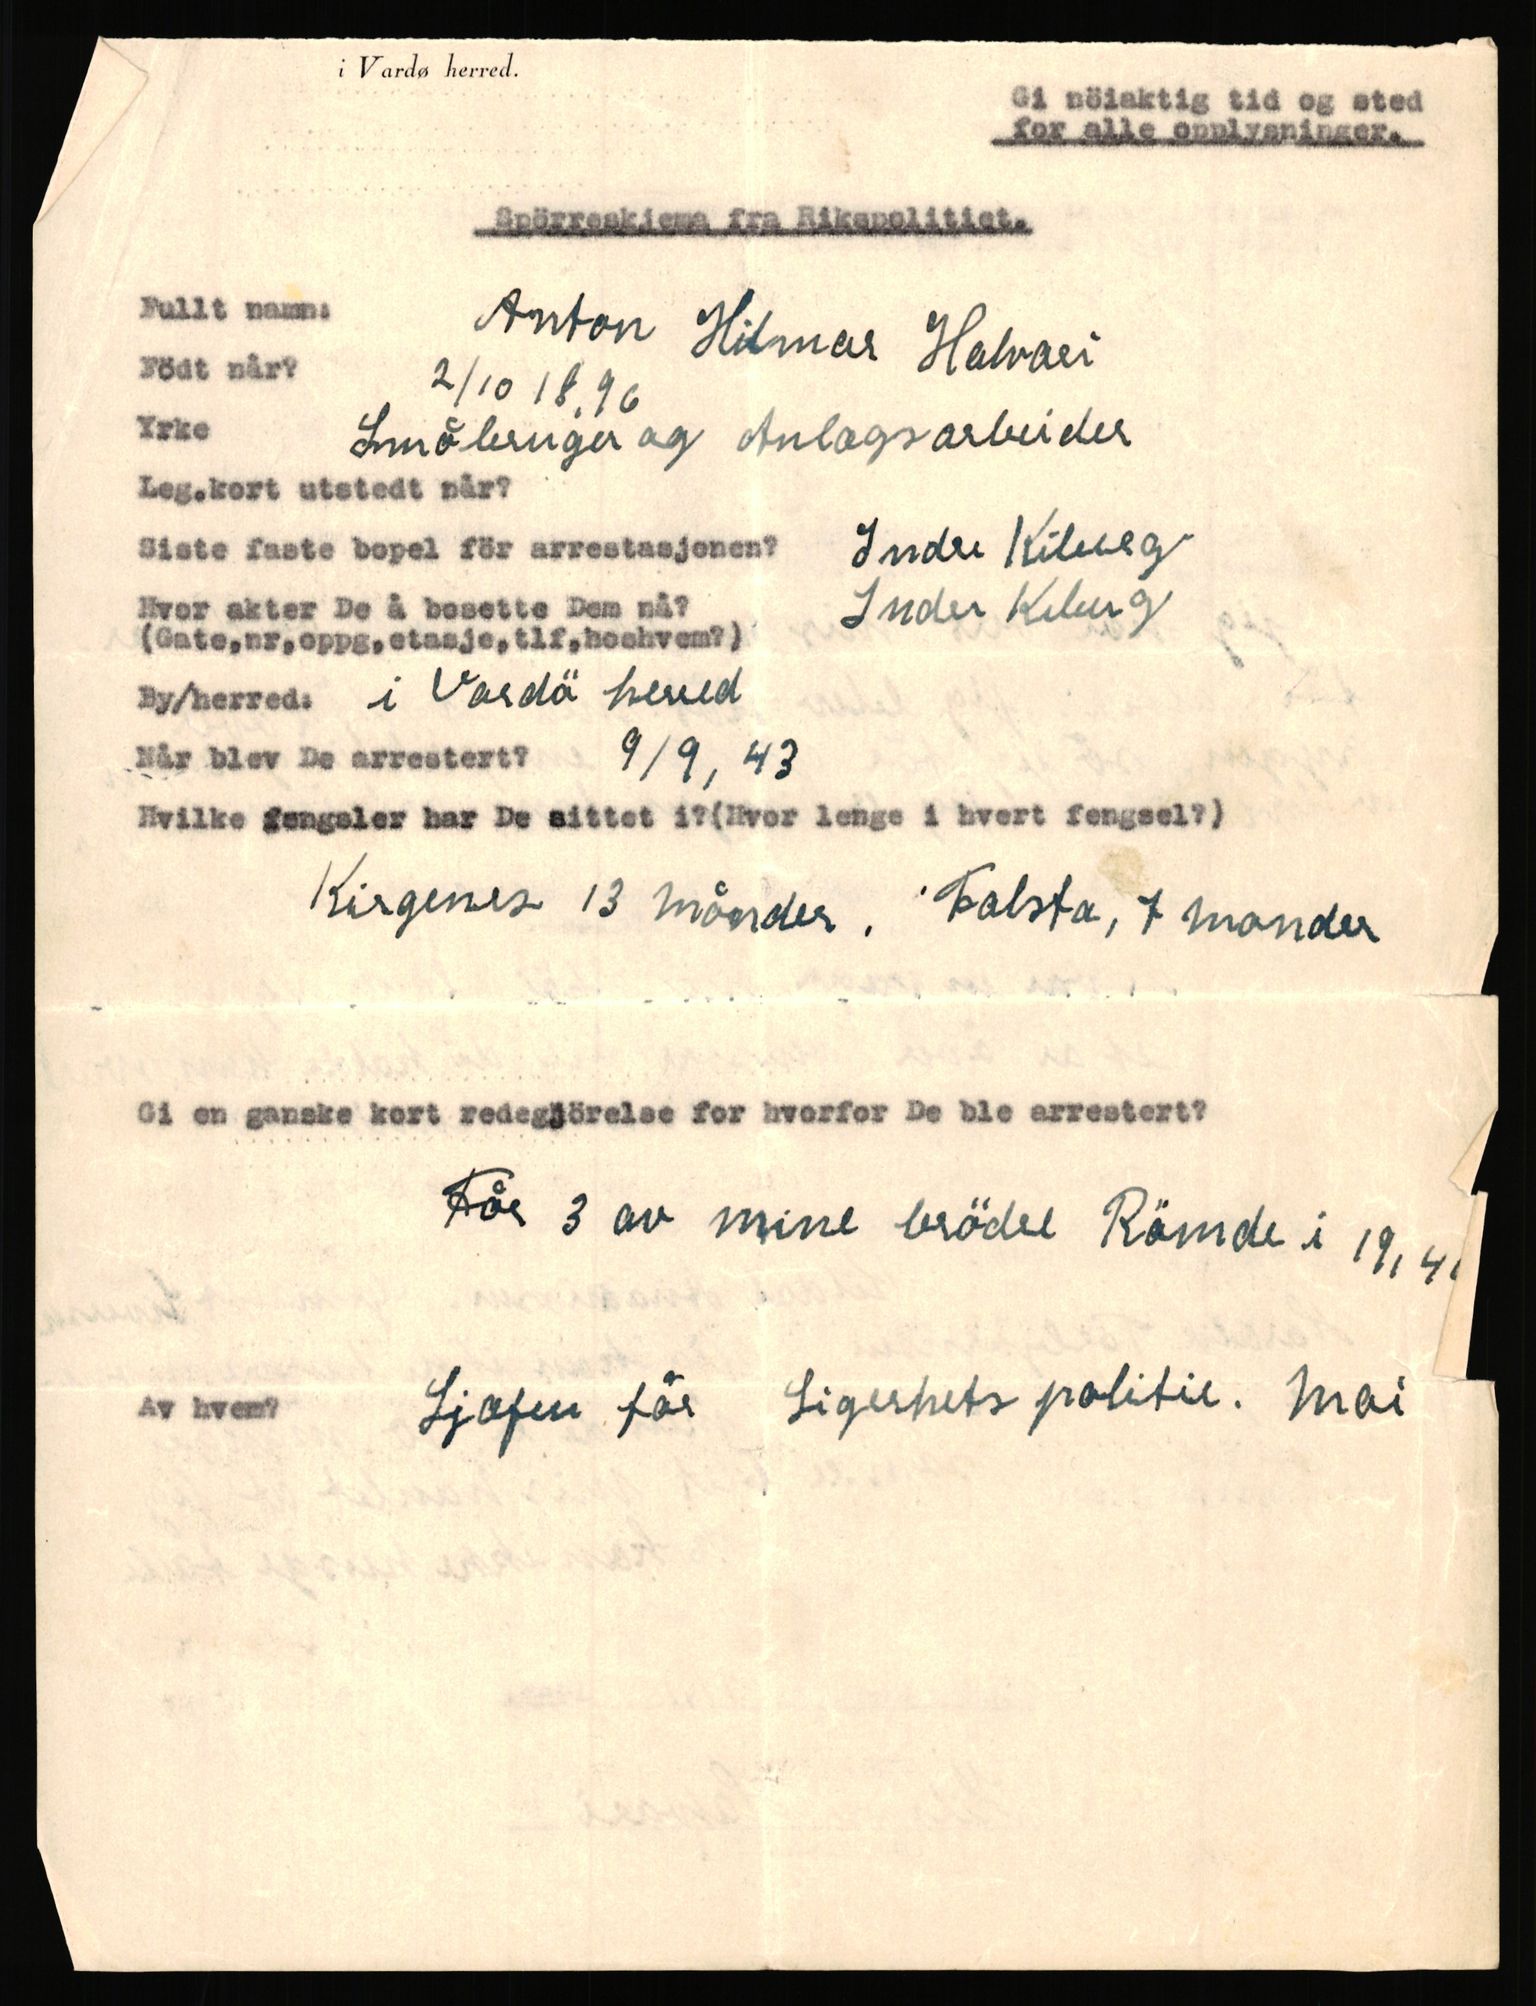 i Vardø herred.
Gi nöiaktig tid og sted
for alle opplysninger.
Spörreskjema fra Rikspolitiet.
Fullt namn: Anton Hilmar Halvari
Födt når? 2/10 18.96
Yrke Småbruger og Anlagsarbeider
Leg.kort utstedt når?
Siste faste bopel för arrestasjonen? Indre Kiberg
Hvor akter De å bosette Dem nå? Inder Kiberg
(Gate,nr,oppg,etasje,tlf,hoshvem?)
By/herred: i Vardö herred
Når blev De arrestert? 9/9, 43
Hvilke fengsler har De sittet i?(Hvor lenge i hvert fengsel?)
Kirgenes 13 Månder. Falsta, 7 Monder
Gi en ganske kort redegjörelse for hvorfor De ble arrestert?
Får 3 av mine brödre Römde i 19, 4
Av hvem? Sjafen får Sigerhets politie. Mai